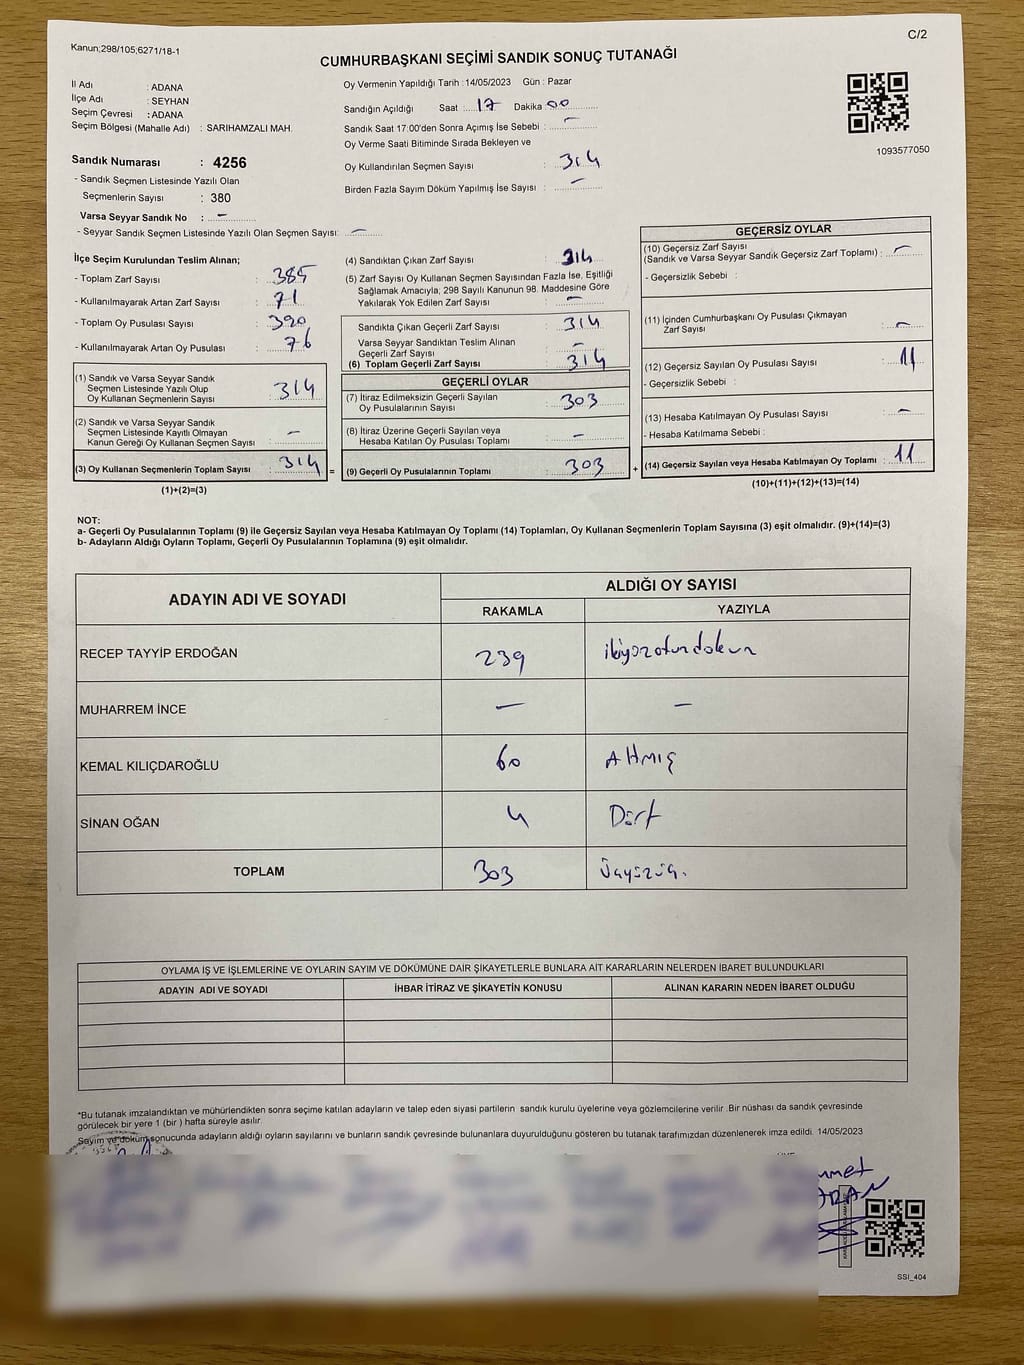 Kanun;298/105;6271/18-1
C/2
CUMHURBAŞKANI SEÇİMİ SANDIK SONUÇ TUTANAĞI
İl Adı : ADANA
İlçe Adı : SEYHAN
Seçim Çevresi : ADANA
Seçim Bölgesi (Mahalle Adı) : SARIHAMZALI MAH.
Sandık Numarası : 4256
- Sandık Seçmen Listesinde Yazılı Olan
Seçmenlerin Sayısı : 380
Varsa Seyyar Sandık No : –
- Seyyar Sandık Seçmen Listesinde Yazılı Olan Seçmen Sayısı: –
Oy Vermenin Yapıldığı Tarih :14/05/2023 Gün : Pazar
Sandığın Açıldığı Saat : 17 Dakika 00
Sandık Saat 17:00'den Sonra Açımış İse Sebebi : –
Oy Verme Saati Bitiminde Sırada Bekleyen ve
Oy Kullandırılan Seçmen Sayısı : 314
Birden Fazla Sayım Döküm Yapılmış İse Sayısı : –
1093577050
İlçe Seçim Kurulundan Teslim Alınan;
- Toplam Zarf Sayısı : 385
- Kullanılmayarak Artan Zarf Sayısı : 71
- Toplam Oy Pusulası Sayısı : 390
- Kullanılmayarak Artan Oy Pusulası : 76
(1) Sandık ve Varsa Seyyar Sandık
Seçmen Listesinde Yazılı Olup
Oy Kullanan Seçmenlerin Sayısı : 314
(2) Sandık ve Varsa Seyyar Sandık
Seçmen Listesinde Kayıtlı Olmayan
Kanun Gereği Oy Kullanan Seçmen Sayısı : –
(3) Oy Kullanan Seçmenlerin Toplam Sayısı : 314 =
(1)+(2)=(3)
(4) Sandıktan Çıkan Zarf Sayısı : 314
(5) Zarf Sayısı Oy Kullanan Seçmen Sayısından Fazla İse, Eşitliği
Sağlamak Amacıyla; 298 Sayılı Kanunun 98. Maddesine Göre
Yakılarak Yok Edilen Zarf Sayısı : –
Sandıkta Çıkan Geçerli Zarf Sayısı : 314
Varsa Seyyar Sandıktan Teslim Alınan
Geçerli Zarf Sayısı : –
(6) Toplam Geçerli Zarf Sayısı : 314
GEÇERLİ OYLAR
(7) İtiraz Edilmeksizin Geçerli Sayılan
Oy Pusulalarının Sayısı : 303
(8) İtiraz Üzerine Geçerli Sayılan veya
Hesaba Katılan Oy Pusulası Toplamı : –
(9) Geçerli Oy Pusulalarının Toplamı : 303 +
GEÇERSİZ OYLAR
(10) Geçersiz Zarf Sayısı
(Sandık ve Varsa Seyyar Sandık Geçersiz Zarf Toplamı) : –
- Geçersizlik Sebebi :
(11) İçinden Cumhurbaşkanı Oy Pusulası Çıkmayan
Zarf Sayısı : –
(12) Geçersiz Sayılan Oy Pusulası Sayısı : 11
- Geçersizlik Sebebi :
(13) Hesaba Katılmayan Oy Pusulası Sayısı : –
- Hesaba Katılmama Sebebi :
(14) Geçersiz Sayılan veya Hesaba Katılmayan Oy Toplamı : 11
(10)+(11)+(12)+(13)=(14)
NOT:
a- Geçerli Oy Pusulalarının Toplamı (9) ile Geçersiz Sayılan veya Hesaba Katılmayan Oy Toplamı (14) Toplamları, Oy Kullanan Seçmenlerin Toplam Sayısına (3) eşit olmalıdır. (9)+(14)=(3)
b- Adayların Aldığı Oyların Toplamı, Geçerli Oy Pusulalarının Toplamına (9) eşit olmalıdır.
ADAYIN ADI VE SOYADI ALDIĞI OY SAYISI
RAKAMLA YAZIYLA
RECEP TAYYİP ERDOĞAN 239 ikiyüzotuzdokuz
MUHARREM İNCE – –
KEMAL KILIÇDAROĞLU 60 Altmış
SİNAN OĞAN 4 Dört
TOPLAM 303 Üçyüzüç.
OYLAMA İŞ VE İŞLEMLERİNE VE OYLARIN SAYIM VE DÖKÜMÜNE DAİR ŞİKAYETLERLE BUNLARA AİT KARARLARIN NELERDEN İBARET BULUNDUKLARI
ADAYIN ADI VE SOYADI İHBAR İTİRAZ VE ŞİKAYETİN KONUSU ALINAN KARARIN NEDEN İBARET OLDUĞU
*Bu tutanak imzalandıktan ve mühürlendikten sonra seçime katılan adayların ve talep eden siyasi partilerin sandık kurulu üyelerine veya gözlemcilerine verilir .Bir nüshası da sandık çevresinde
görülecek bir yere 1 (bir ) hafta süreyle asılır.
Sayım ve döküm sonucunda adayların aldığı oyların sayılarını ve bunların sandık çevresinde bulunanlara duyurulduğunu gösteren bu tutanak tarafımızdan düzenlenerek imza edildi. 14/05/2023
SSI_404